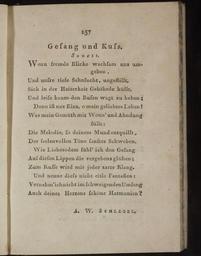 157
Gesang und Kuſs.
Sonett.
Wenn fremde Blicke wachsam uns um-
geben,
Und unſre tiefe Sehnſucht, ungeſtillt,
Sich in der Heiterkeit Gebährde hüllt,
Und leiſe kaum den Buſen wagt zu heben;
Dann iſt nur Eins, o mein geliebtes Leben!
Was mein Gemüth mit Wonn' und Ahndung
füllt:
Die Melodie, ſo deinem Mund entquillt,
Der ſeelenvollen Töne ſanftes Schweben.
Wie Liebesodem fühl' ich den Gesang
Auf dieſen Lippen die vergebens glühen;
Zum Kuſſe wird mir jeder zarte Klang.
Und nenne dieſs nicht eitle Fantaſien:
Vernahm'ich nicht im ſchweigenden Umfang
Auch deines Herzens ſchöne Harmonien?
A. W. Schlegel.